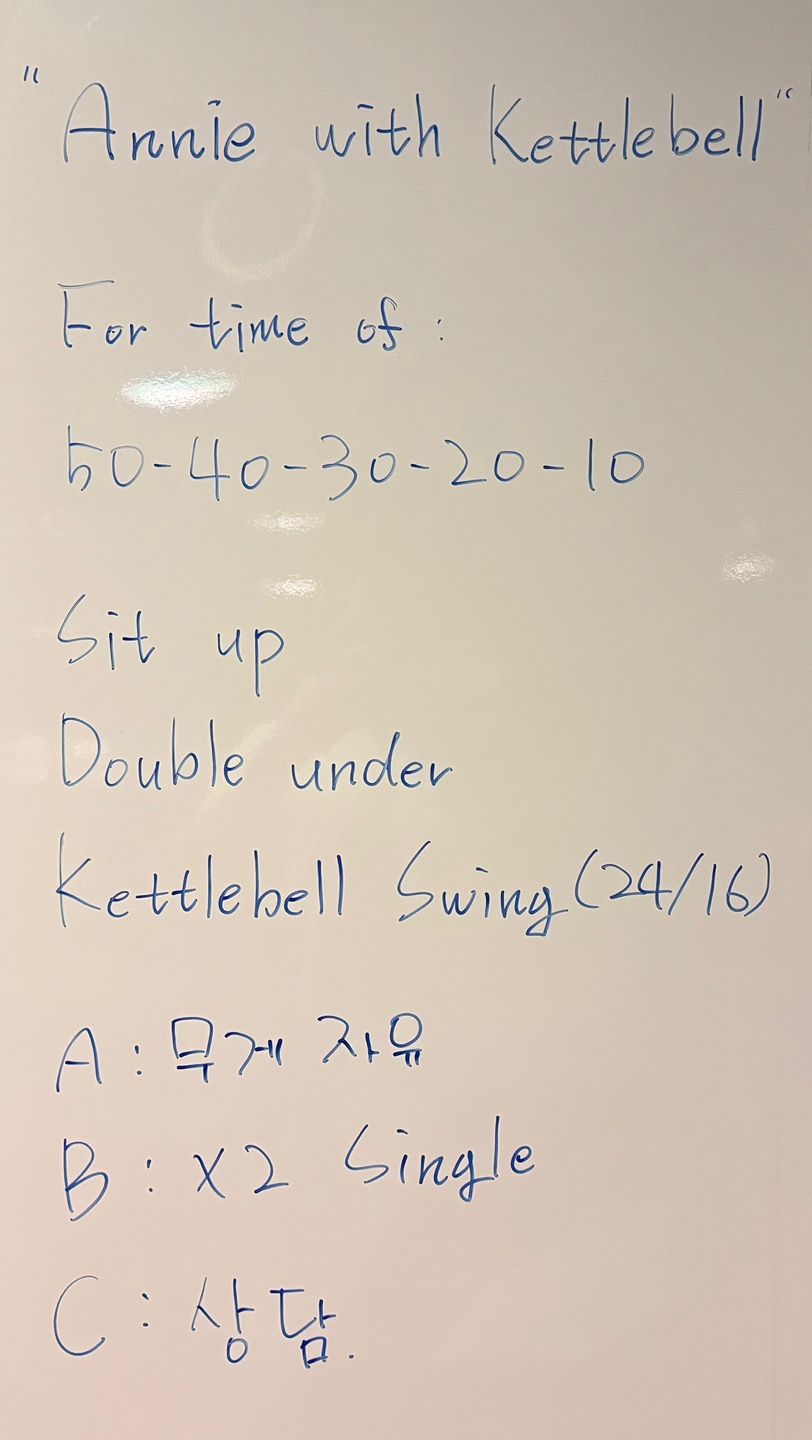 "Annie with Kettlebell"
For time of :
50-40-30-20-10
Sit up
Double under
Kettlebell Swing (24/16)
A : 무게 자유
B : x2 Single
C : 상담.